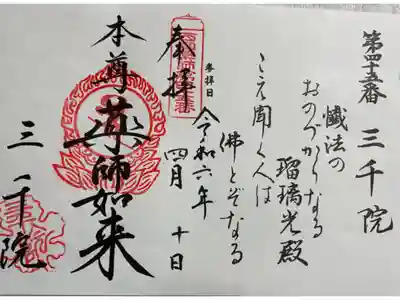 第四十五番 三千院
懴法の
おのづからなる
瑠璃光殿
ここで聞く人は
佛とぞなる
参拝日
令和六年
四月 十日
奉拝
本尊 薬師如来
三千院